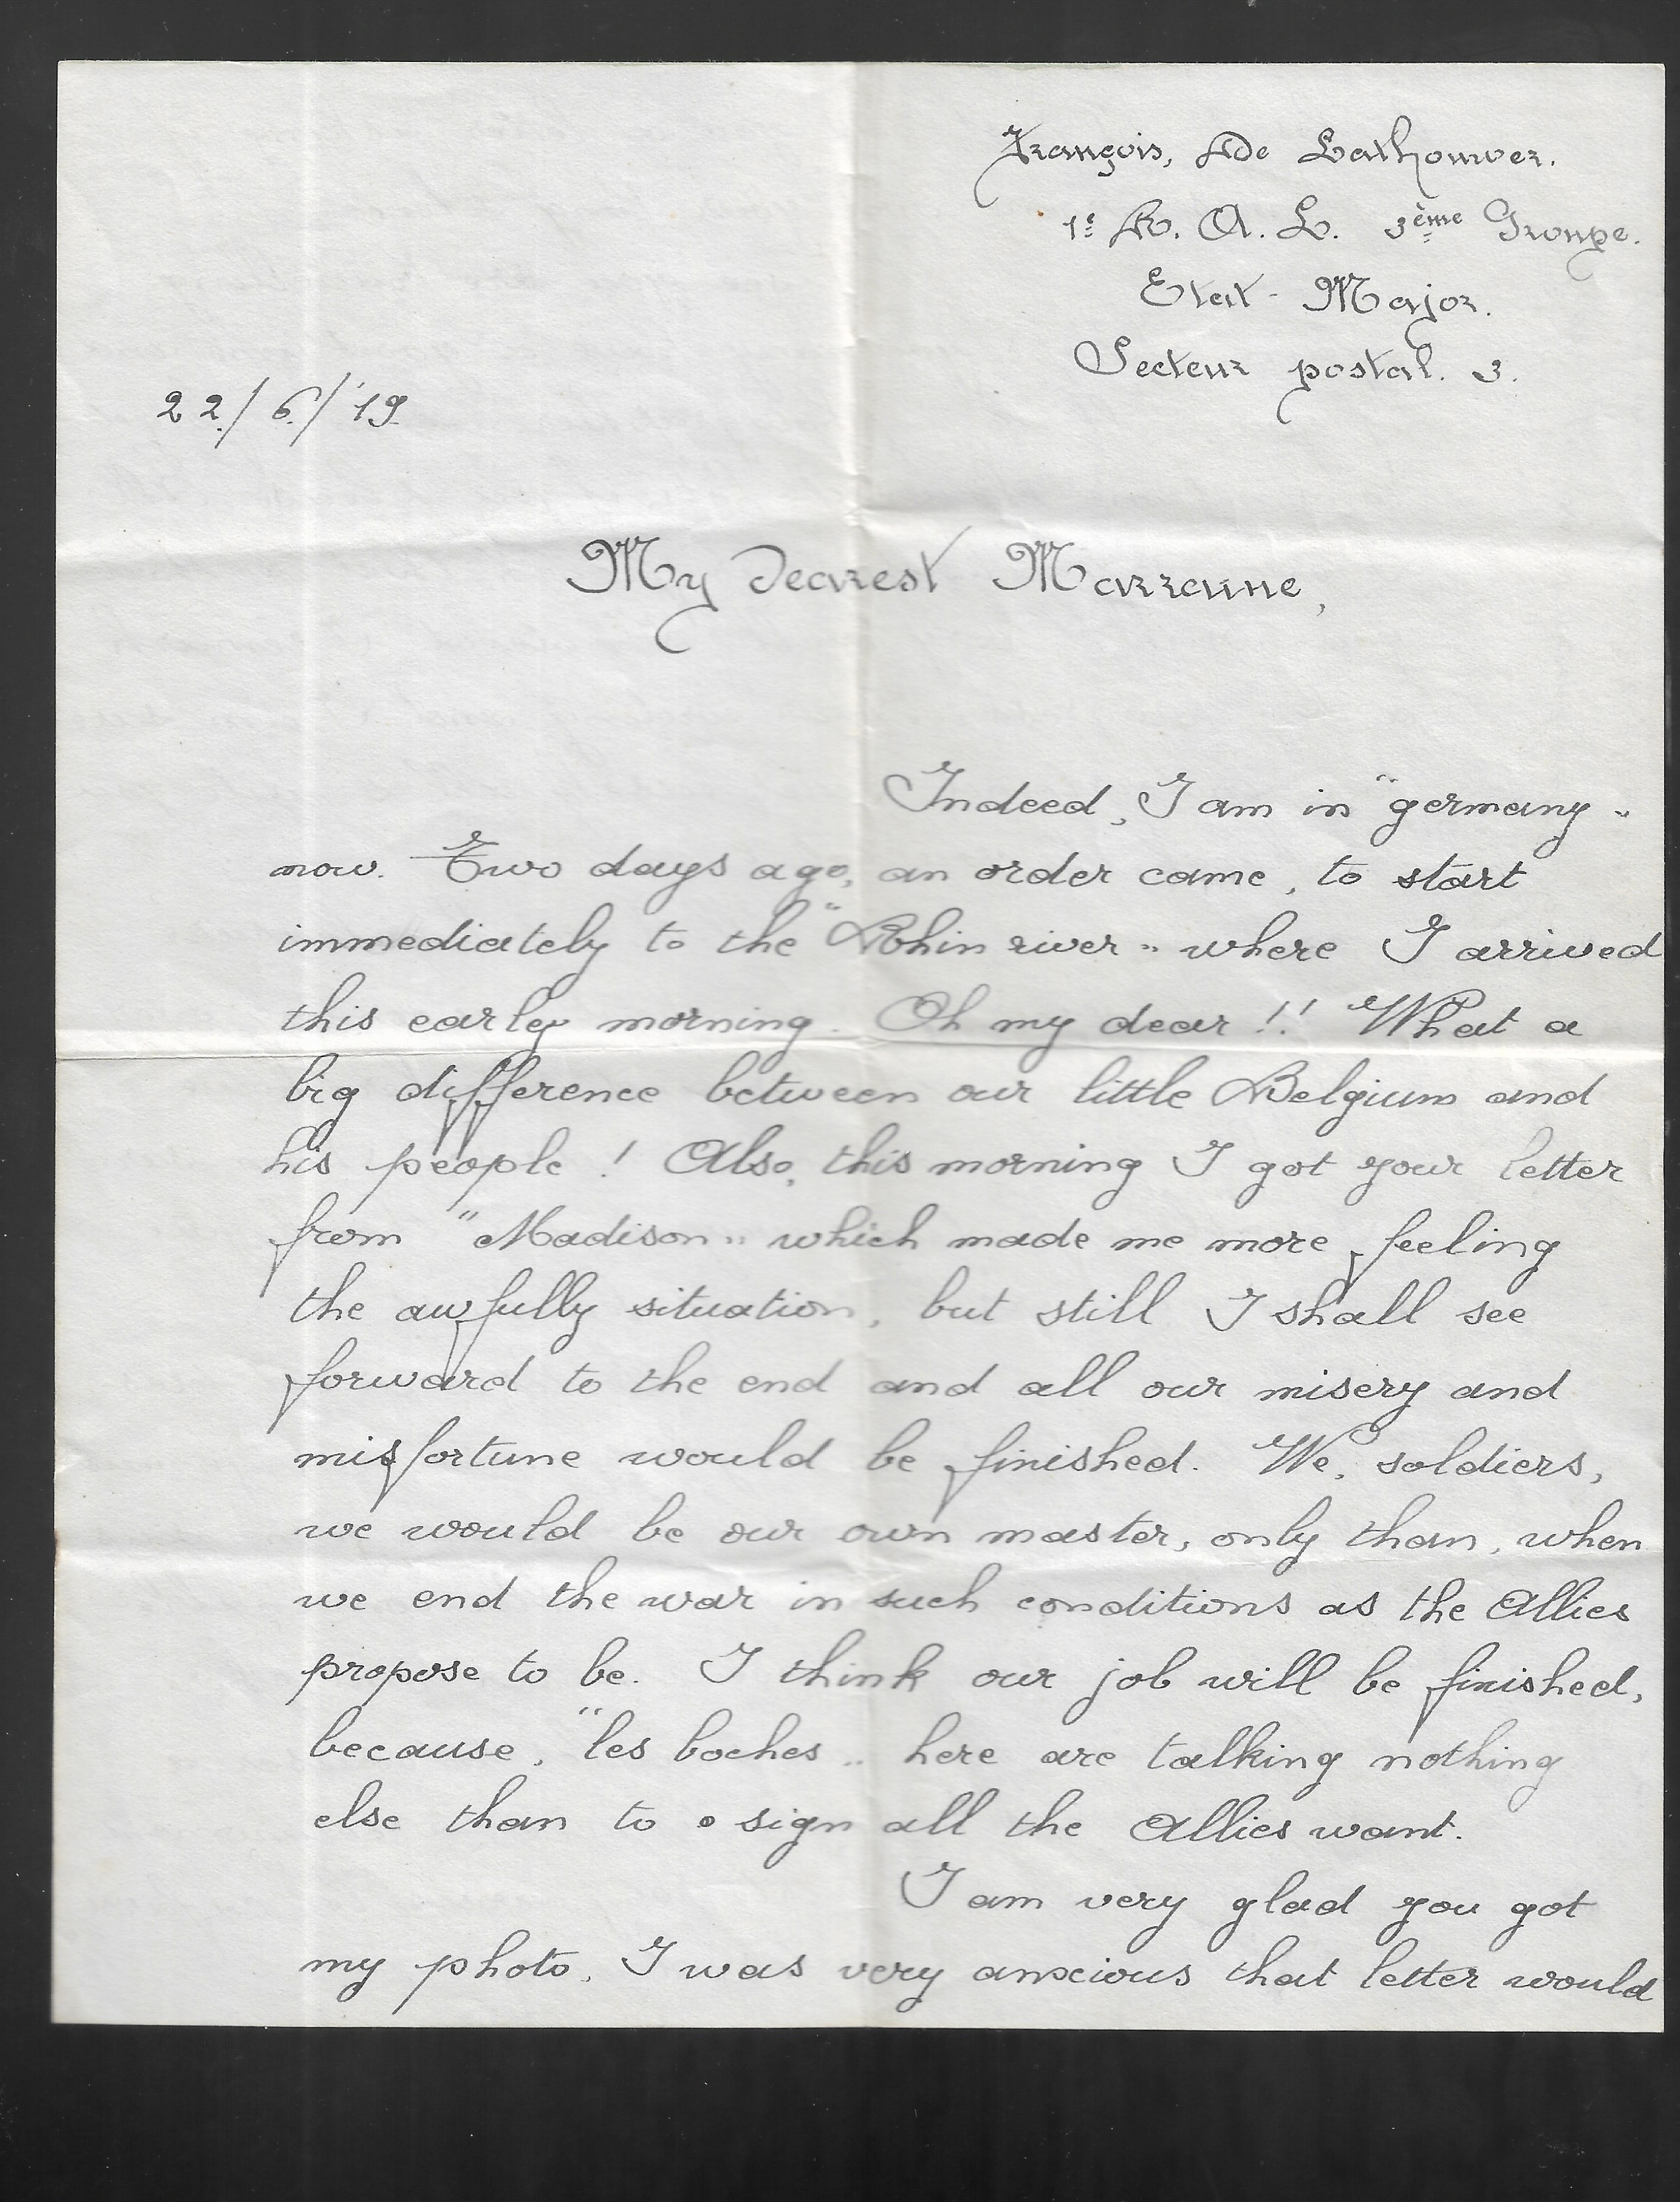 François, De Lathouwer.
1e R. A. L. 3ème Groupe.
Etat-Major.
Secteur postal. 3.
22/6/19
My dearest Marraine,
Indeed, I am in "germany"
now. Two days ago, an order came, to start
immediately to the "Rhin river" where I arrived
this early morning. Oh my dear!! What a
big difference between our little Belgium and
his people! Also, this morning I got your letter
from "Madison" which made me more feeling
the awfully situation, but still I shall see
forward to the end and all our misery and
misfortune would be finished. We, soldiers,
we would be our own master, only than, when
we end the war in such conditions as the Allies
propose to be. I think our job will be finished,
because, "les boches" here are talking nothing
else than to sign all the Allies want.
I am very glad you got
my photo. I was very anxcious that letter would